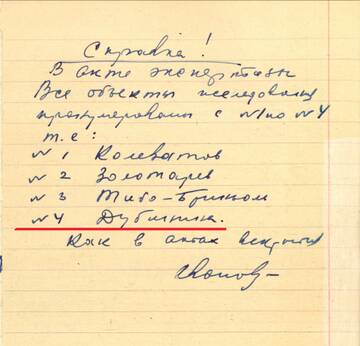 Справка!
В акте экспертизы
Все объекты исследования
пронумерованы с №1 по №4
т.е:
№ 1 Колеватов
№ 2 Золотарев
№ 3 Тибо-Бриньом
№ 4 Дубинина.
Как в актах вскрытия